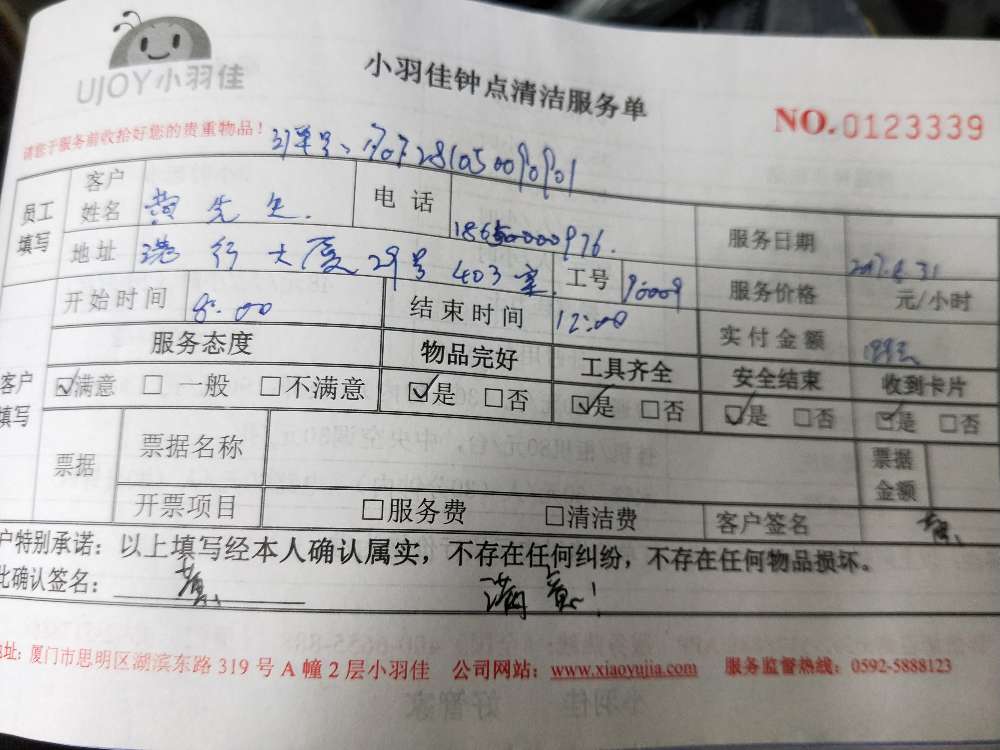 UJOY小羽佳
小羽佳钟点清洁服务单
NO.0123339
请您于服务前收拾好您的贵重物品！
员工填写
客户姓名 黄先生. 电话
服务日期
地址 港行大厦29号403室. 工号 90009
服务价格 元/小时
开始时间 8:00 结束时间 12:00
实付金额
客户填写
服务态度 物品完好 工具齐全 安全结束 收到卡片
☑满意 □一般 □不满意 ☑是 □否 ☑是 □否 ☑是 □否 ☑是 □否
票据 票据名称 票据金额
开票项目 □服务费 □清洁费 客户签名 黄
户特别承诺：以上填写经本人确认属实，不存在任何纠纷，不存在任何物品损坏。
此确认签名： 黄 满意！
地址：厦门市思明区湖滨东路 319 号 A 幢 2 层小羽佳 公司网站：www.xiaoyujia.com 服务监督热线：0592-5888123